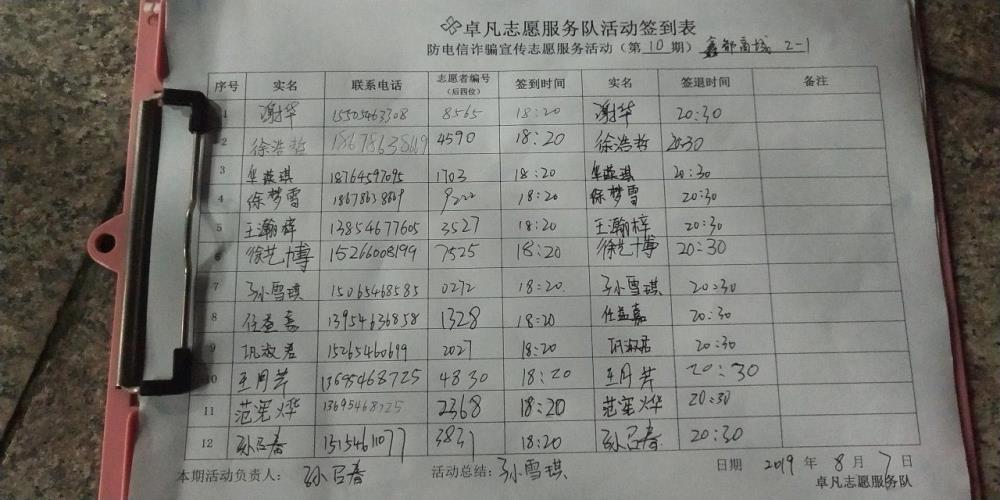 卓凡志愿服务队活动签到表
防电信诈骗宣传志愿服务活动（第10期） 鑫都商城 2-1
序号 实名 联系电话 志愿者编号（后四位） 签到时间 实名 签退时间 备注
1 谢华 15505463308 8565 18:20 谢华 20:30
2 徐浩哲 18678638669 4590 18:20 徐浩哲 20:30
3 18764597095 1703 18:20 20:30
4 徐梦雪 18678638669 9222 18:20 徐梦雪 20:30
5 王瀚梓 13854677605 3527 18:20 王瀚梓 20:30
6 徐艺博 15266008199 7525 18:20 徐艺博 20:30
7 孙雪琪 15065468585 0272 18:20 孙雪琪 20:30
8 13954636858 1328 18:20 20:30
9 巩淑君 15265460699 2027 18:20 巩淑君 20:30
10 王月芹 13695468725 4830 18:20 王月芹 20:30
11 13695468725 2368 18:20 20:30
12 孙召春 18:20 孙召春 20:30
本期活动负责人： 孙召春 活动总结：孙雪琪 日期 2019 年 8 月 7 日
卓凡志愿服务队